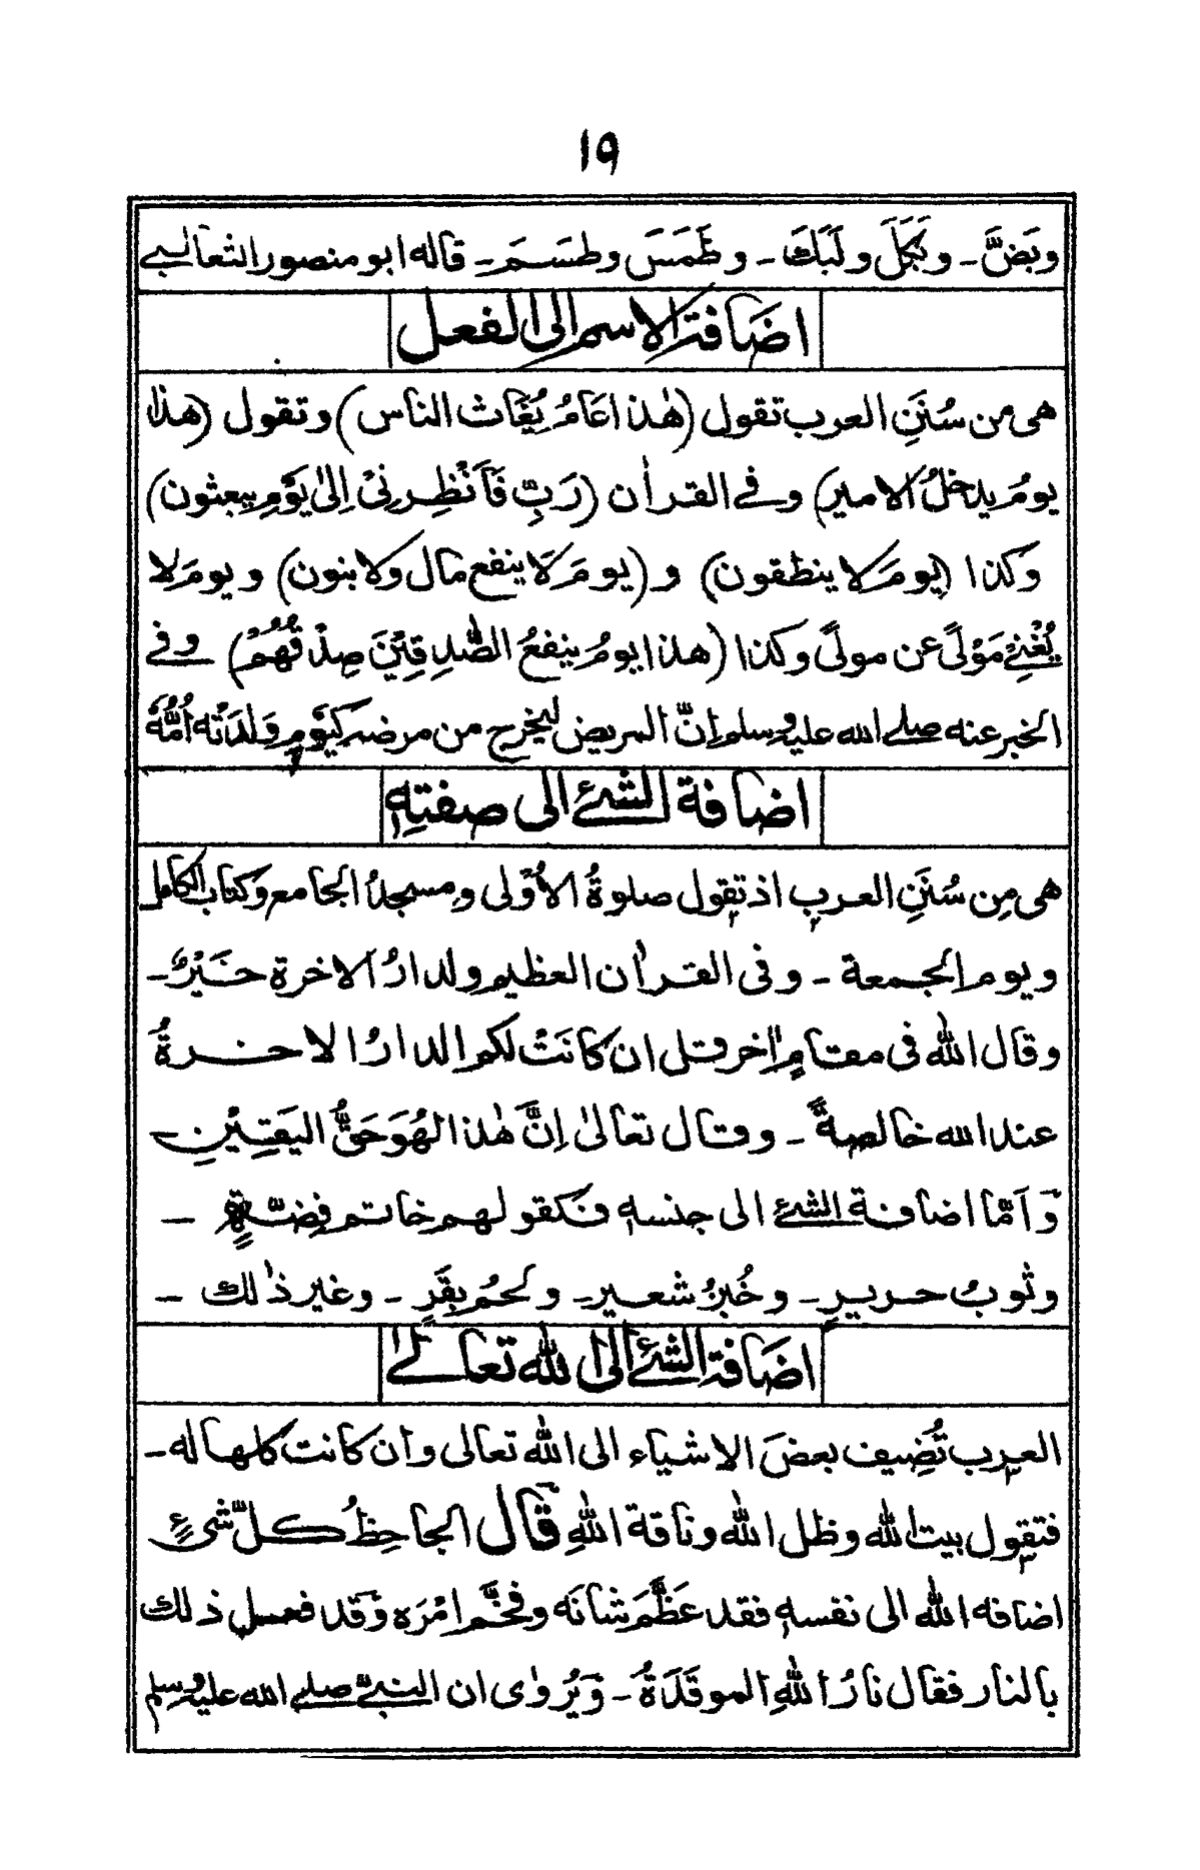 ١٩
وبَضَّ ـ وبَكَلَ ولَبَكَ ـ وطَمَسَ وطسَمَ ـ قاله ابو منصور الثعالبي
اضَافة الاسم الى الفعل
هى من سُنَنِ العرب تقول (هٰذا عَامُ يُغَاث الناس) وتقول (هذا
يومُ يدخلُ الامير) وفي القراٰن (رَبِّ فَاَنْظِرنِىْ اِلىٰ يَوْمِ يبعثون)
وكذا (يومَ لا ينطقون) و (يومَ لَا ينفع مال ولا بنون) و يومَ لا
يُغْنِىْ مَوْلًى عن مولًى وكذا (هذا يومُ ينفعُ الصّٰدِقِيْنَ صِدْقُهُمْ) وفي
الخبر عنه صلے الله عليه وسلم اِنَّ المريض ليخرج من مرضه كيَوْمٍ وَلدَتْه اُمُّهٗ
اضافة الشئ الى صفتِهٖ
هى مِن سُنَنِ العرب اذ تقول صلوةُ الأُوْلى ومسجدُ الجامع وكتاب الكامل
ويوم الجمعة ـ وفى القراٰن العظيم ولدارُ الاخرة خَيْرٌ ـ
وقال الله فى مقامٍ اٰخر قل ان كانَتْ لكم الدارُ الاخرةُ
عند الله خالصةً ـ وقال تعالىٰ اِنَّ هٰذا لهُوَ حَقُّ اليَقِيْنِ
وَاَمّا اضافة الشئ الى جنسه فكقولهم خاتم فِضّةٍ ـ
وثوبُ حريرٍ ـ وخُبزُ شعيرٍ ـ ولحمُ بقَرٍ ـ وغير ذٰلك ـ
اضَافة الشئ الى الله تعالے
العرب تُضِيف بعضَ الاشياء الى الله تعالى وان كانت كلها له ـ
فتقول بيت الله وظل الله وناقة اللهِ قَال الجاحِظُ كلّ شىءٍ
اضافه الله الى نفسهٖ فقد عَظَّمَ شانَه وفخَّم امْرَه وَقَد فعل ذلك
بالنار فقال نارُ اللهِ الموقَدَةُ ـ وَيُروٰى ان النبىّ صلے الله عليه وسلم